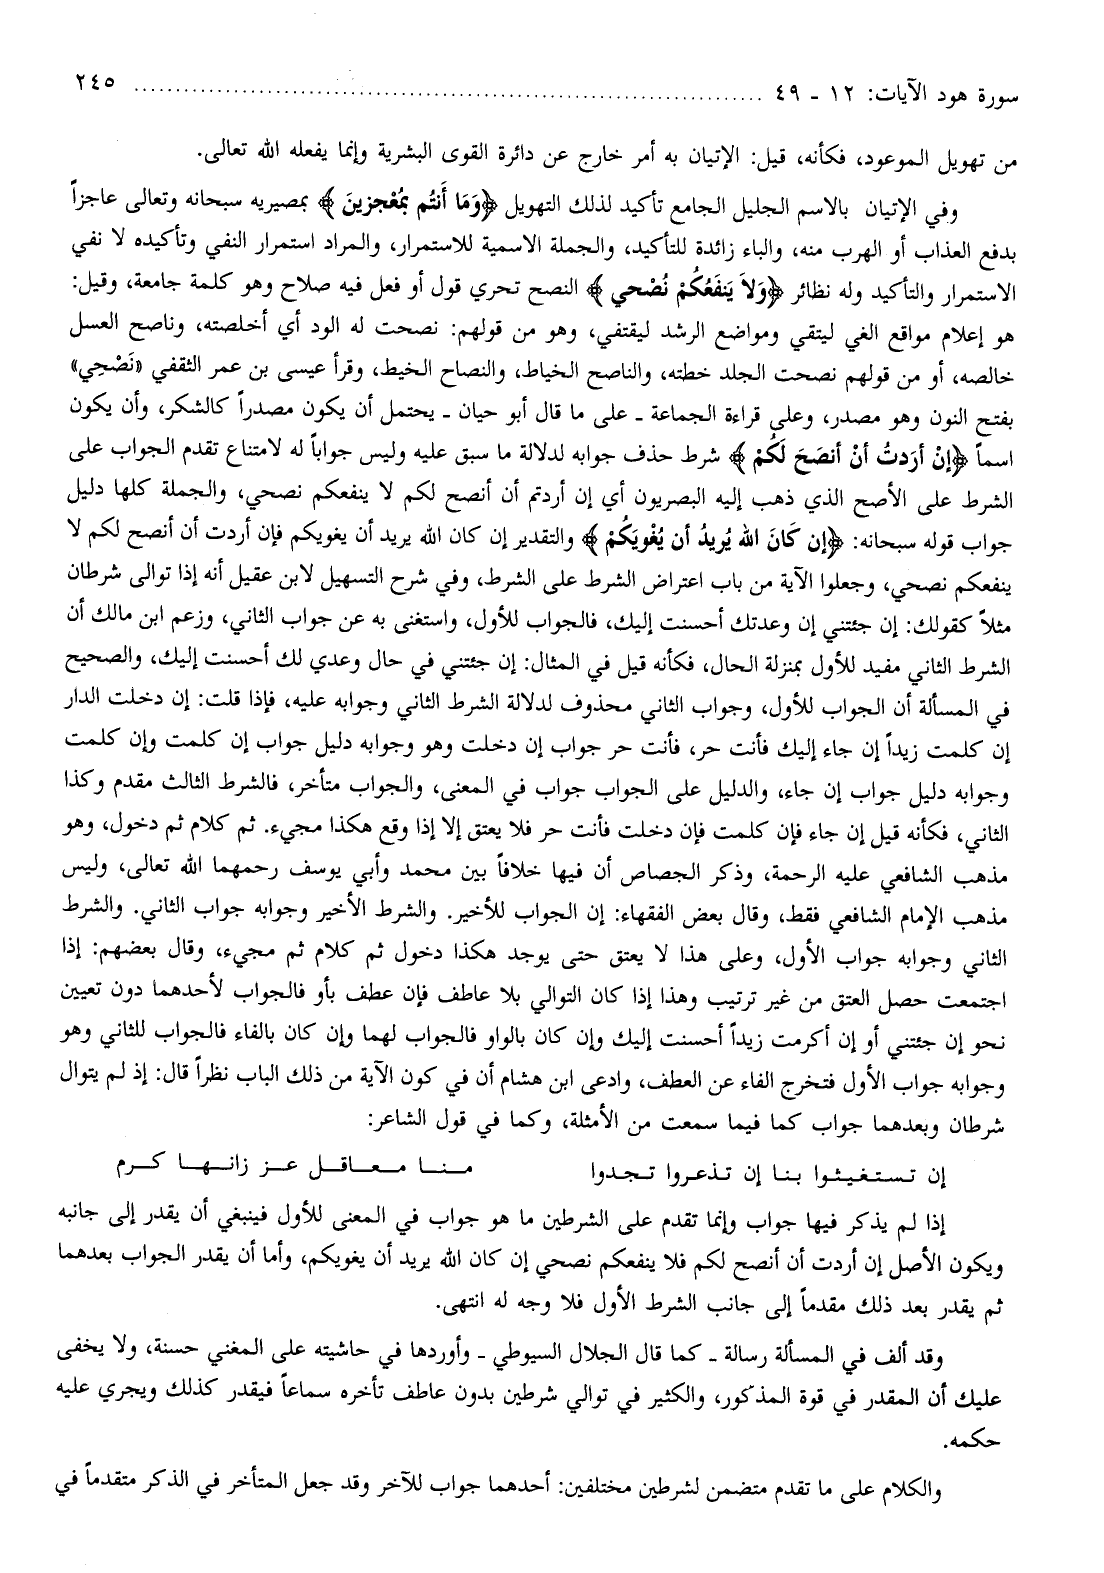 سورة هود الآيات: ١٢ - ٤٩ ........................................................................................ ٢٤٥
من تهويل الموعود، فكأنه، قيل: الإتيان به أمر خارج عن دائرة القوى البشرية وإنما يفعله الله تعالى.
وفي الإتيان بالاسم الجليل الجامع تأكيد لذلك التهويل ﴿وَمَا أَنتُم بِمُعْجِزِينَ﴾ بمصيريه سبحانه وتعالى عاجزاً
بدفع العذاب أو الهرب منه، والباء زائدة للتأكيد، والجملة الاسمية للاستمرار، والمراد استمرار النفي وتأكيده لا نفي
الاستمرار والتأكيد وله نظائر ﴿وَلاَ يَنفَعُكُمْ نُصْحي﴾ النصح تحري قول أو فعل فيه صلاح وهو كلمة جامعة، وقيل:
هو إعلام مواقع الغي ليتقي ومواضع الرشد ليقتفي، وهو من قولهم: نصحت له الود أي أخلصته، وناصح العسل
خالصه، أو من قولهم نصحت الجلد خطته، والناصح الخياط، والنصاح الخيط، وقرأ عيسى بن عمر الثقفي «نَصْحِي»
بفتح النون وهو مصدر، وعلى قراءة الجماعة ـ على ما قال أبو حيان ـ يحتمل أن يكون مصدراً كالشكر، وأن يكون
اسماً ﴿إنْ أرَدتُ أنْ أنصَحَ لَكُمْ﴾ شرط حذف جوابه لدلالة ما سبق عليه وليس جواباً له لامتناع تقدم الجواب على
الشرط على الأصح الذي ذهب إليه البصريون أي إن أردتم أن أنصح لكم لا ينفعكم نصحي، والجملة كلها دليل
جواب قوله سبحانه: ﴿إن كَانَ الله يُريدُ أن يُغْويَكُمْ﴾ والتقدير إن كان الله يريد أن يغويكم فإن أردت أن أنصح لكم لا
ينفعكم نصحي، وجعلوا الآية من باب اعتراض الشرط على الشرط، وفي شرح التسهيل لابن عقيل أنه إذا توالى شرطان
مثلاً كقولك: إن جئتني إن وعدتك أحسنت إليك، فالجواب للأول، واستغنى به عن جواب الثاني، وزعم ابن مالك أن
الشرط الثاني مفيد للأول بمنزلة الحال، فكأنه قيل في المثال: إن جئتني في حال وعدي لك أحسنت إليك، والصحيح
في المسألة أن الجواب للأول، وجواب الثاني محذوف لدلالة الشرط الثاني وجوابه عليه، فإذا قلت: إن دخلت الدار
إن كلمت زيداً إن جاء إليك فأنت حر، فأنت حر جواب إن دخلت وهو وجوابه دليل جواب إن كلمت وإن كلمت
وجوابه دليل جواب إن جاء، والدليل على الجواب جواب في المعنى، والجواب متأخر، فالشرط الثالث مقدم وكذا
الثاني، فكأنه قيل إن جاء فإن كلمت فإن دخلت فأنت حر فلا يعتق إلا إذا وقع هكذا مجيء. ثم كلام ثم دخول، وهو
مذهب الشافعي عليه الرحمة، وذكر الجصاص أن فيها خلافاً بين محمد وأبي يوسف رحمهما الله تعالى، وليس
مذهب الإمام الشافعي فقط، وقال بعض الفقهاء: إن الجواب للأخير. والشرط الأخير وجوابه جواب الثاني. والشرط
الثاني وجوابه جواب الأول، وعلى هذا لا يعتق حتى يوجد هكذا دخول ثم كلام ثم مجيء، وقال بعضهم: إذا
اجتمعت حصل العتق من غير ترتيب وهذا إذا كان التوالي بلا عاطف فإن عطف بأو فالجواب لأحدهما دون تعيين
نحو إن جئتني أو إن أكرمت زيداً أحسنت إليك وإن كان بالواو فالجواب لهما وإن كان بالفاء فالجواب للثاني وهو
وجوابه جواب الأول فتخرج الفاء عن العطف، وادعى ابن هشام أن في كون الآية من ذلك الباب نظراً قال: إذ لم يتوال
شرطان وبعدهما جواب كما فيما سمعت من الأمثلة، وكما في قول الشاعر:
إن تستغيثوا بنا إن تذعروا تجدوا منا معاقل عز زانها كرم
إذا لم يذكر فيها جواب وإنما تقدم على الشرطين ما هو جواب في المعنى للأول فينبغي أن يقدر إلى جانبه
ويكون الأصل إن أردت أن أنصح لكم فلا ينفعكم نصحي إن كان الله يريد أن يغويكم، وأما أن يقدر الجواب بعدهما
ثم يقدر بعد ذلك مقدماً إلى جانب الشرط الأول فلا وجه له انتهى.
وقد ألف في المسألة رسالة ـ كما قال الجلال السيوطي ـ وأوردها في حاشيته على المغني حسنة، ولا يخفى
عليك أن المقدر في قوة المذكور، والكثير في توالي شرطين بدون عاطف تأخره سماعاً فيقدر كذلك ويجري عليه
حكمه.
والكلام على ما تقدم متضمن لشرطين مختلفين: أحدهما جواب للآخر وقد جعل المتأخر في الذكر متقدماً في